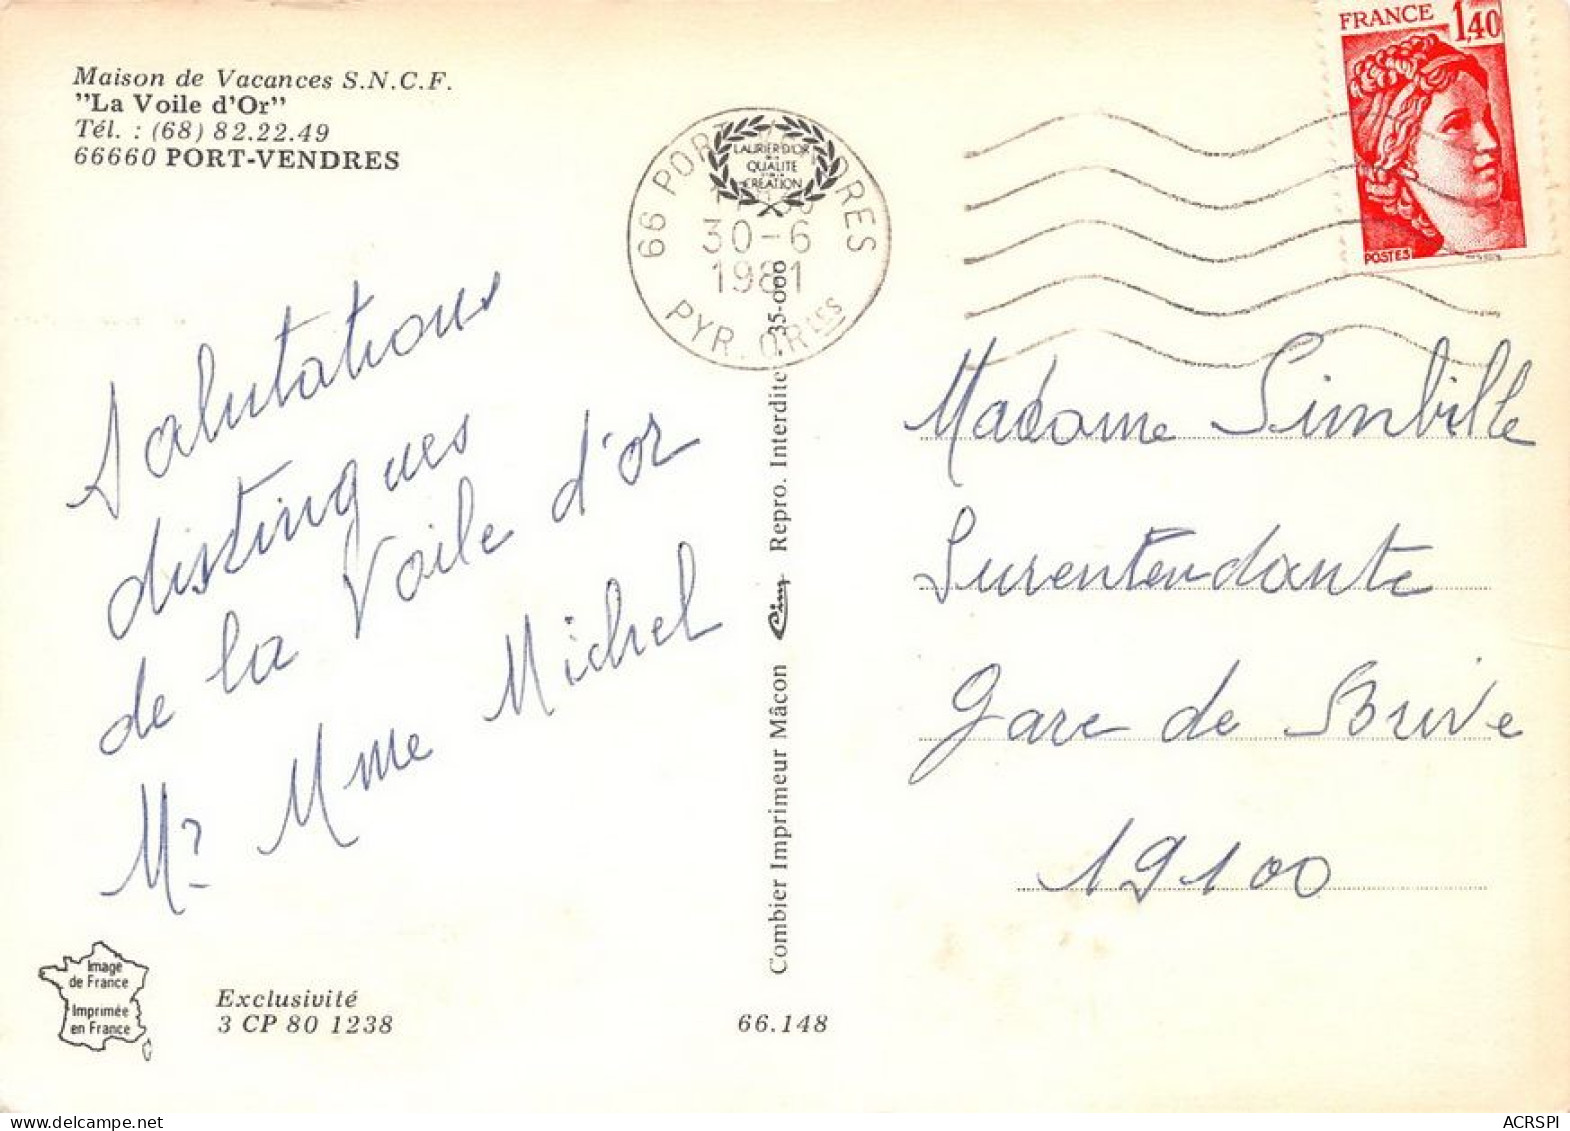 Maison de Vacances S.N.C.F.
"La Voile d'Or"
Tél. : (68) 82.22.49
66660 PORT-VENDRES
Salutations
distingues
de la Voile d'or
Mr Mme Michel
Image
de France
Imprimée
en France
Exclusivité
3 CP 80 1238
66.148
Combier Imprimeur Mâcon Cim Repro. Interdite 35-000
LAURIER D'OR
QUALITÉ
CRÉATION
66 PORT VENDRES
30-6
1981
PYR. ORLES
FRANCE 1,40
POSTES
Madame Simbille
Surentendante
Gare de Brive
19100
www.delcampe.net
ACRSPI